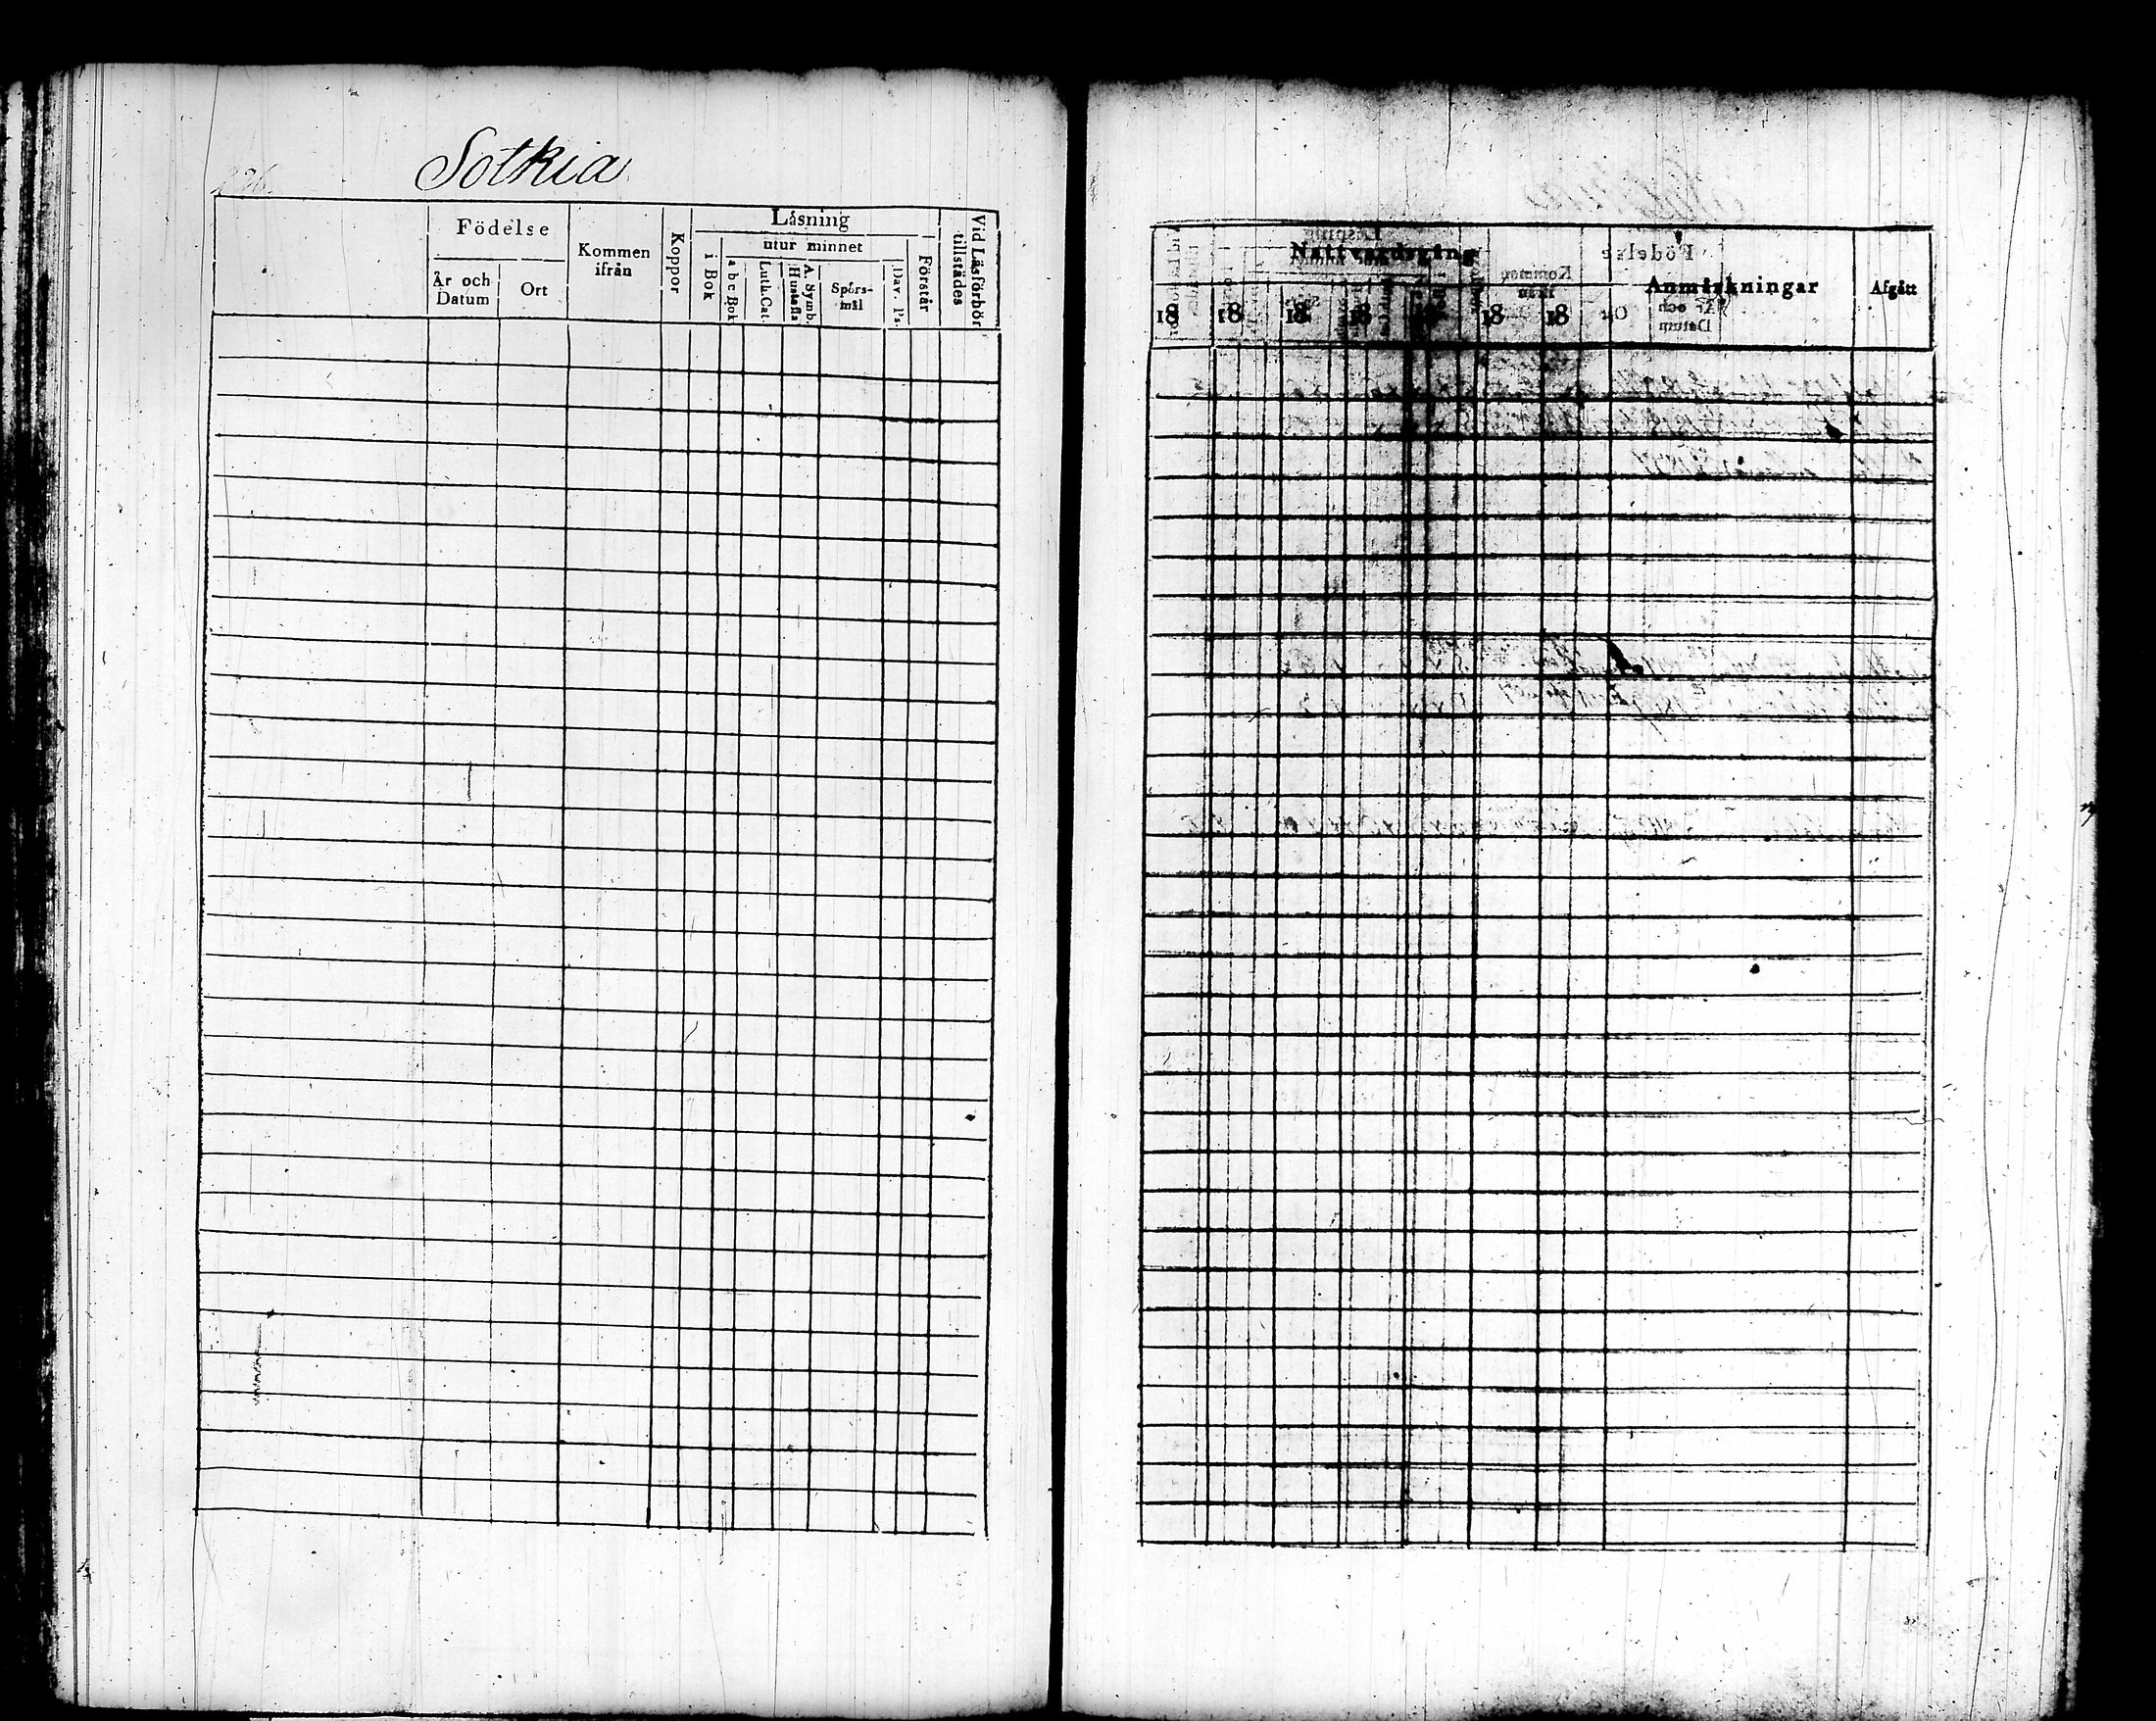 Sotkia
Födelse
År och Datum
Ort
Kommen ifrån
Koppor
Läsning
i Bok
utur minnet
a b c Bok
Luth. Cat.
A. Symb. Hustafla
Spörs-mål
Dav. Ps.
Förstår
Vid Läsförhör tillstädes
Nattvardsgång
18 18 18 18 18 18
Anmärkningar
Afgått